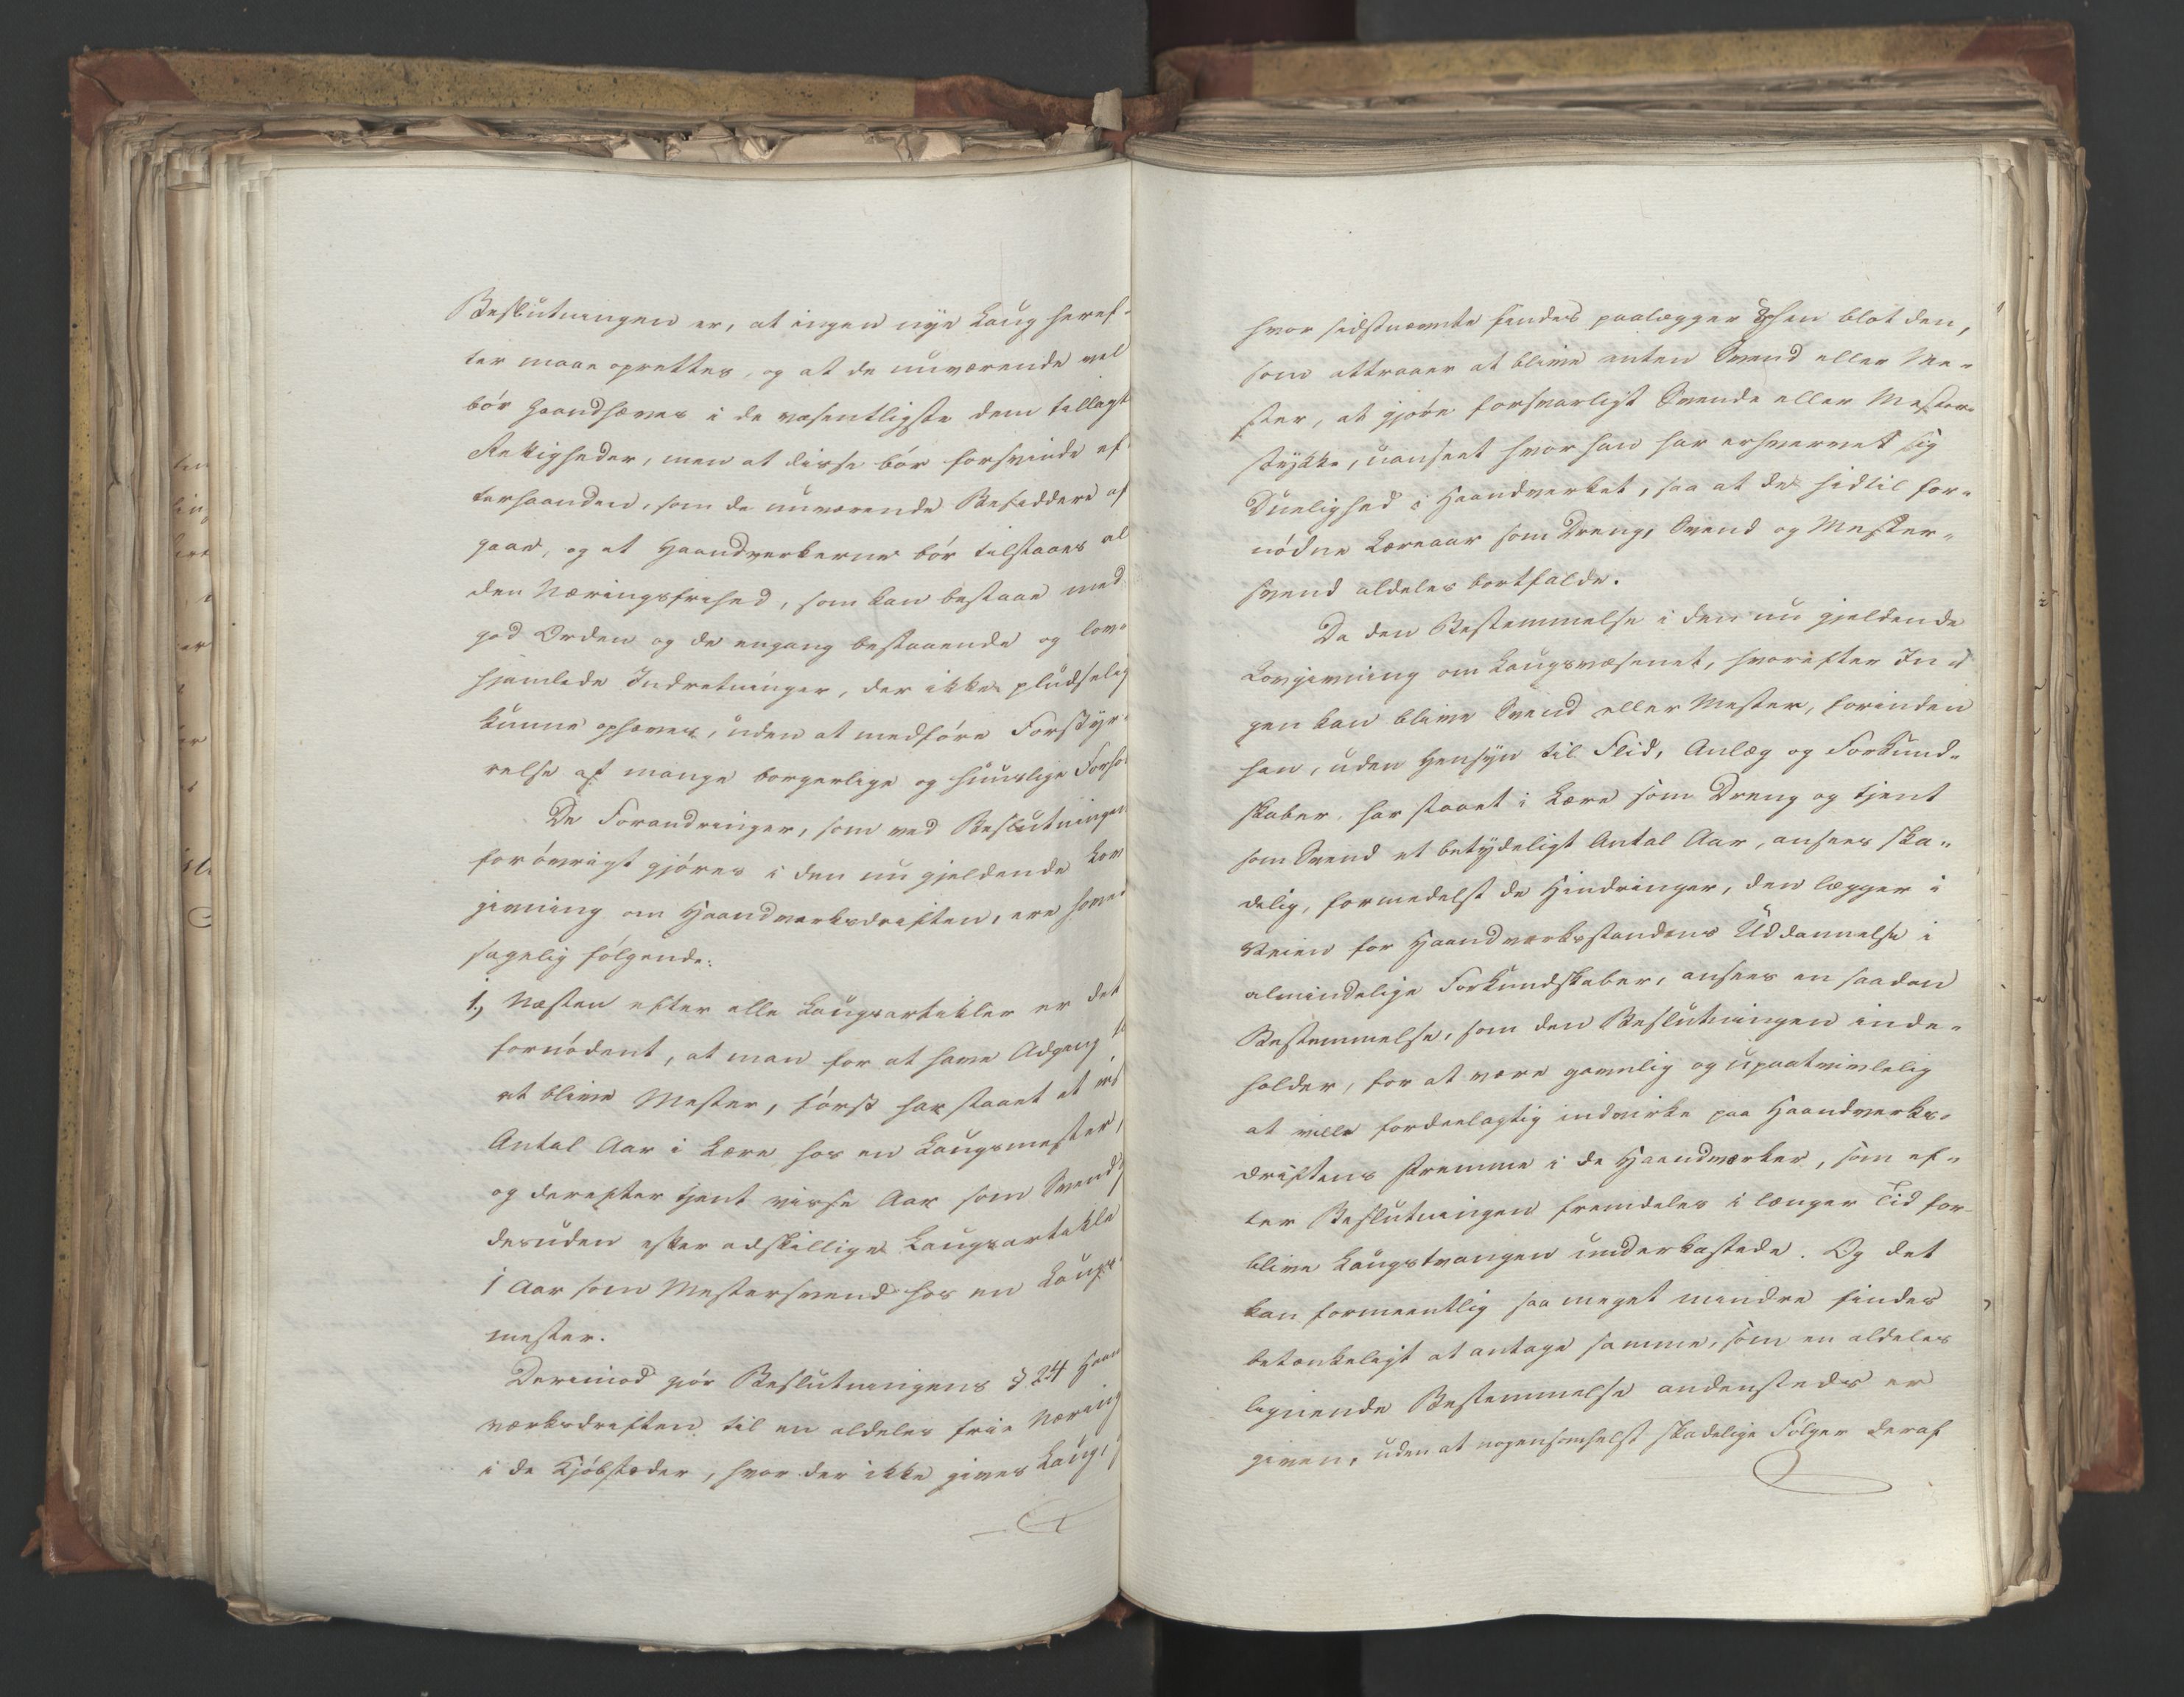 Beslutningen er, at ingen nye Laug heref-
ter maae oprettes, og at de nuværende vel
bør haandhæves i de væsentligste dem tillagt
Rettigheder, men at disse bør forsvinde ef-
terhaanden, som de nuværende Besiddere af
gaae, og at Haandverkerne bør tilstaaes al
den Næringsfrihed, som kan bestaae med
god Orden og de engang bestaaende og lov-
hjemlede Indretninger, der ikke pludselig
kunne ophæves, uden at medføre Forstyr-
relse af mange borgerlige og huuslige Forho
De Forandringer, som ved Beslutningen
forøvrigt gjøres i den nu gjeldende Lov
givning om Haandverksdriften, ere hoved
sagelig følgende:
1, Næsten efter alle Laugsartikler er det
fornødent, at man for at have Adgang t
at blive Mester, først har staaet et vis
Antal Aar i Lære hos en Laugsmester,
og derefter tjent visse Aar som Svend,
desuden efter adskillige Laugsartikle
1 Aar som Mestersvend hos en Laugs-
mester.
Derimod gjør Beslutningens § 24 Haan
værksdriften til en aldeles frie Næring
i de Kjøbstæder, hvor der ikke gives Laug,
hvor sidstnævnte findes paalægger §phen blot den,
som attraaer at blive anten Svend eller Me-
ster, at gjøre forsvarligt Svende eller Mester-
stykke, uanseet hvor han har erhvervet sig
Duelighed i Haandverket, saa at de hidtil for-
nødne Læreaar som Dreng, Svend og Mester-
svend aldeles bortfalde.
Da den Bestemmelse i den nu gjeldende
Lovgivning om Laugsvæsenet, hvorefter In-
gen kan blive Svend eller Mester, forinden
han, uden Hensyn til Flid, Anlæg og Forkund-
skaber, har staaet i Lære som Dreng og tjent
som Svend et betydeligt Antal Aar, ansees ska-
delig, formedelst de Hindringer, den lægger i
Veien for Haandverksstandens Uddannelse i
almindelige Forkundskaber, ansees en saadan
Bestemmelse, som den Beslutningen inde-
holder, for at være gavnlig og upaatvivlelig
at ville fordeelagtig indvirke paa Haandverks-
driftens Fremme i de Haandværker, som ef-
ter Beslutningen fremdeles i længer Tid for-
blive Laugstvangen underkastede. Og det
kan formeentlig saa meget mindre findes
betænkeligt at antage samme, som en aldeles
lignende Bestemmelse andensteds er
given, uden at nogensomhelst skadelige Følger deraf